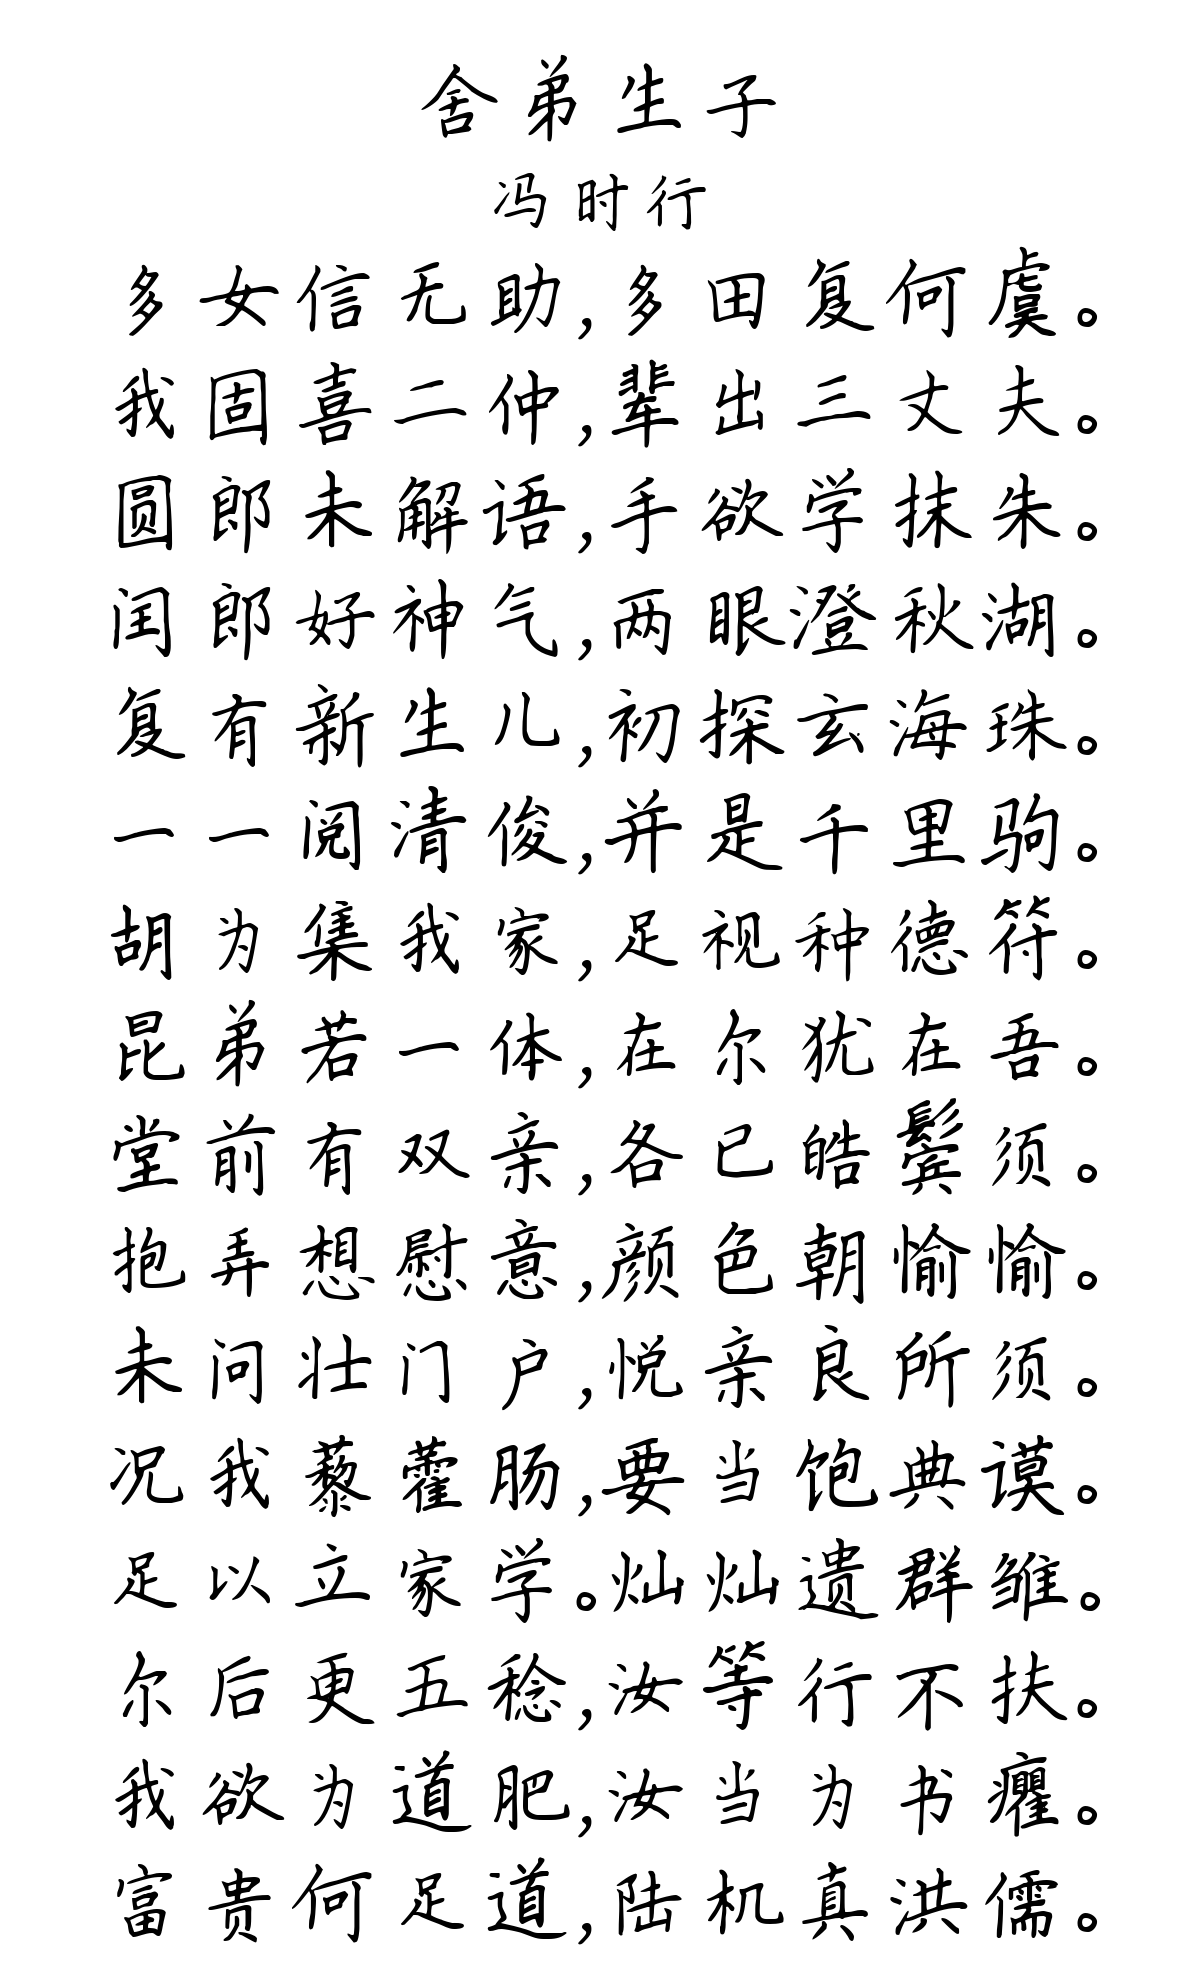 舍弟生子
冯时行
多女信无助,多田复何虞。
我固喜二仲,辈出三丈夫。
圆郎未解语,手欲学抹朱。
闰郎好神气,两眼澄秋湖。
复有新生儿,初探玄海珠。
一一阅清俊,并是千里驹。
胡为集我家,足视种德符。
昆弟若一体,在尔犹在吾。
堂前有双亲,各已皓鬓须。
抱弄想慰意,颜色朝愉愉。
未问壮门户,悦亲良所须。
况我藜藿肠,要当饱典谟。
足以立家学。灿灿遗群雏。
尔后更五稔,汝等行不扶。
我欲为道肥,汝当为书癯。
富贵何足道,陆机真洪儒。